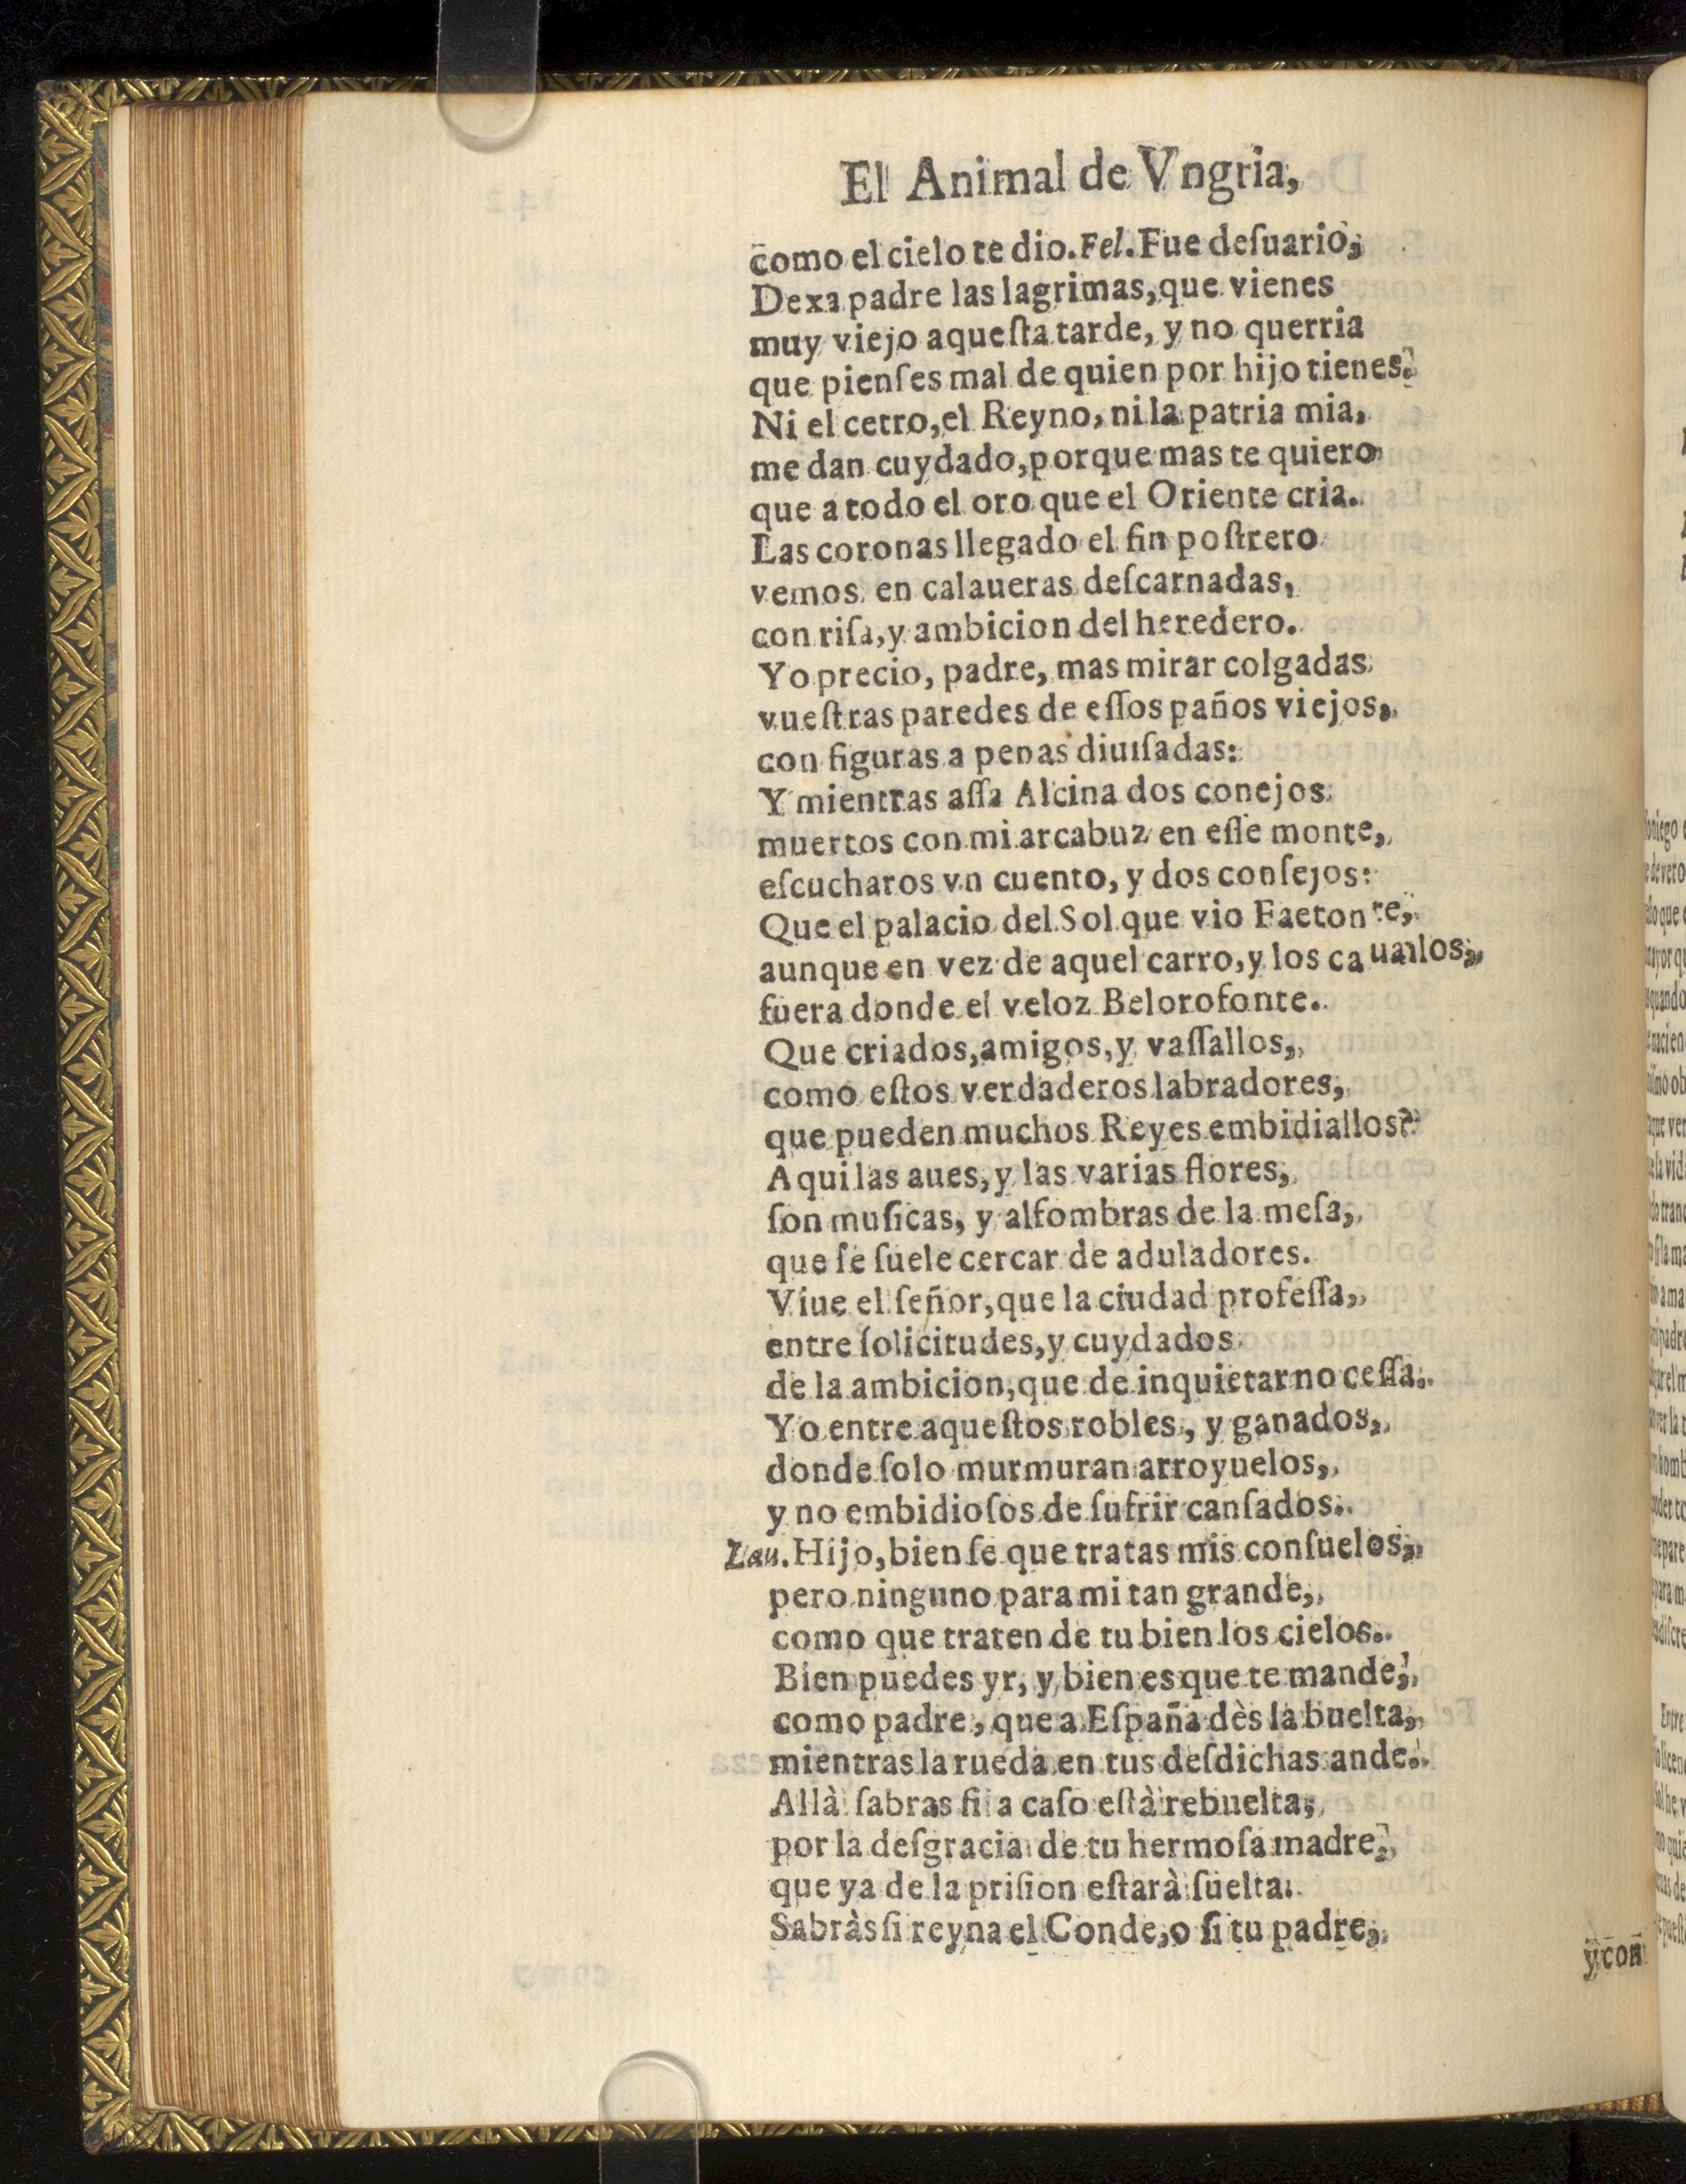 El Animal de Vngria,
como el cielo te dio. Fel. Fue deſuario,
Dexa padre las lagrimas, que vienes
muy viejo aqueſta tarde, y no querria
que pienſes mal de quien por hijo tienes.
Ni el cetro, el Reyno, ni la patria mia,
me dan cuydado, porque mas te quiero
que a todo el oro que el Oriente cria.
Las coronas llegado el fin poſtrero
vemos en calaueras deſcarnadas,
con riſa, y ambicion del heredero.
Yo precio, padre, mas mirar colgadas
vueſtras paredes de eſſos paños viejos,
con figuras a penas diuiſadas:
Y mientras aſſa Alcina dos conejos
muertos con mi arcabuz en eſſe monte,
eſcucharos vn cuento, y dos conſejos:
Que el palacio del Sol que vio Faetonte,
aunque en vez de aquel carro, y los cauallos,
fuera donde el veloz Belorofonte.
Que criados, amigos, y vaſſallos,
como eſtos verdaderos labradores,
que pueden muchos Reyes embidiallos?
Aqui las aues, y las varias flores,
ſon muſicas, y alfombras de la meſa,
que ſe ſuele cercar de aduladores.
Viue el ſeñor, que la ciudad profeſſa,
entre ſolicitudes, y cuydados
de la ambicion, que de inquietar no ceſſa.
Yo entre aqueſtos robles, y ganados,
donde ſolo murmuran arroyuelos,
y no embidioſos de ſufrir canſados.
Lau. Hijo, bien ſe que tratas mis conſuelos,
pero ninguno para mi tan grande,
como que traten de tu bien los cielos.
Bien puedes yr, y bien es que te mande,
como padre, que a Eſpaña dès la buelta,
mientras la rueda en tus deſdichas ande.
Allà ſabras ſi a caſo eſtà rebuelta,
por la deſgracia de tu hermoſa madre,
que ya de la priſion eſtarà ſuelta.
Sabràs ſi reyna el Conde, o ſi tu padre,
y con